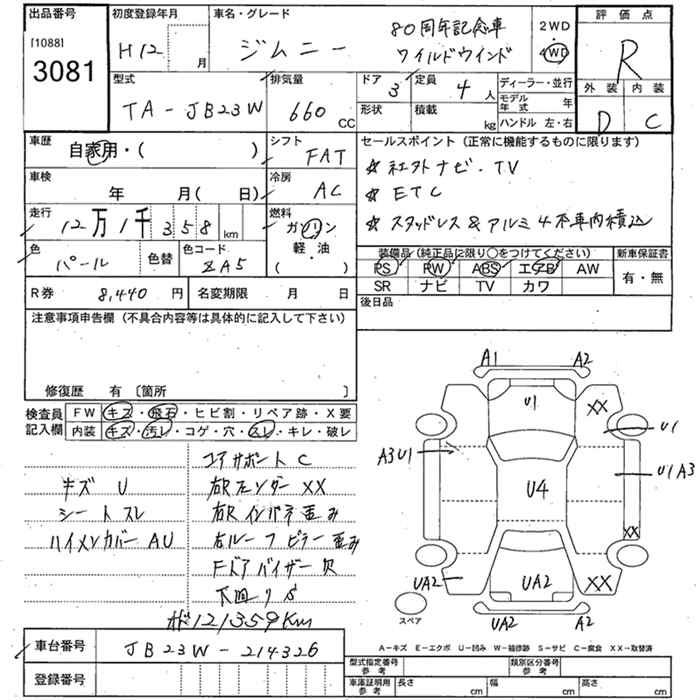 出品番号
[1088]
3081
初度登録年月
H12 月
車名・グレード
ジムニー
80周年記念車
ワイルドウインド
2WD
4WD
評価点
R
外装 内装
D C
型式
TA-JB23W
排気量
660 CC
ドア
3
定員
4 人
形状
積載
kg
ディーラー・並行
モデル年式 年
ハンドル 左・右
車歴
自家用・( )
シフト
FAT
車検
年 月( 日)
冷房
AC
走行
12万1千358 km
燃料
ガソリン
軽・油
( )
色
パール
色替
色コード
ZA5
R券 8,440 円
名変期限 月 日
セールスポイント(正常に機能するものに限ります)
☆ 社外ナビ・TV
☆ ETC
☆ スタッドレス&アルミ4本車内積込
装備品(純正品に限り○をつけてください)
PS PW ABS エアB AW
SR ナビ TV カワ
新車保証書
有・無
後日品
注意事項申告欄(不具合内容等は具体的に記入して下さい)
修復歴 有〔箇所 〕
検査員記入欄
FW キズ・飛石・ヒビ割・リペア跡・X要
内装 キズ・汚レ・コゲ・穴・スレ・キレ・破レ
キズ U
シートスレ
ハイメンカバー AU
コアサポート C
右Rフェンダー XX
右Rインパネ歪み
右ルーフピラー歪み
Fドアバイザー欠
下回りS
121359Km
A1 A2
U1
XX
U1
A3U1
U1A3
U4
XX
UA2
UA2
XX
UA2 A2
スペア
車台番号
JB23W-214326
登録番号
A-キズ E-エクボ U-凹み W-補修跡 S-サビ C-腐食 XX→取替済
型式指定番号 参考
類別区分番号 参考
車庫証明用 参考
長さ cm
幅 cm
高さ cm